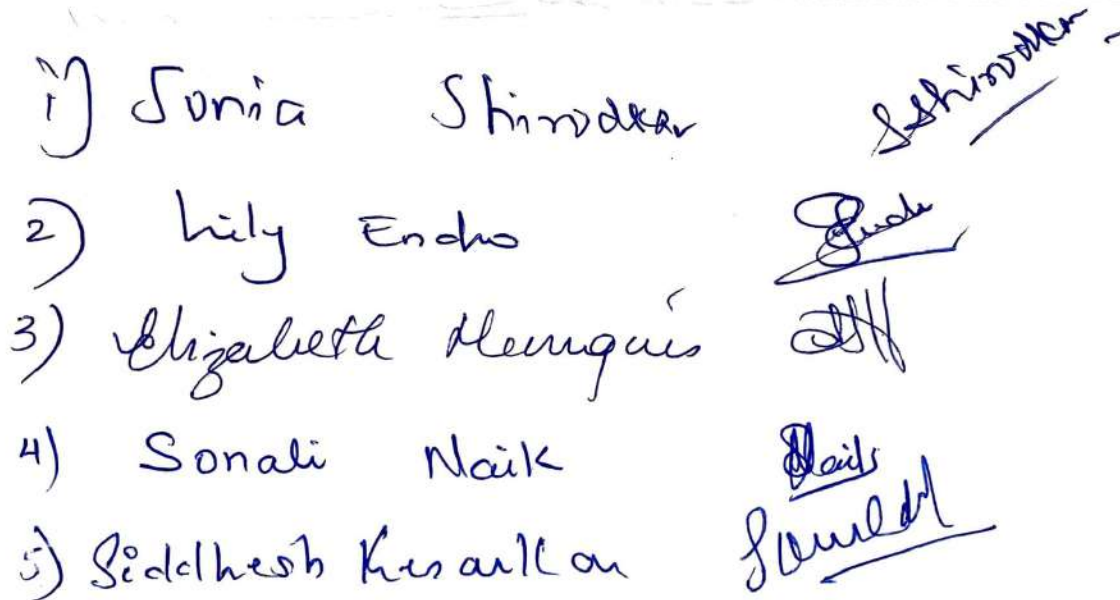 1) Sonia Shirodkar SShirodkar
2) Lily Endro
3) Elizabeth
4) Sonali Naik Naik
5) Siddhesh Kesarkar